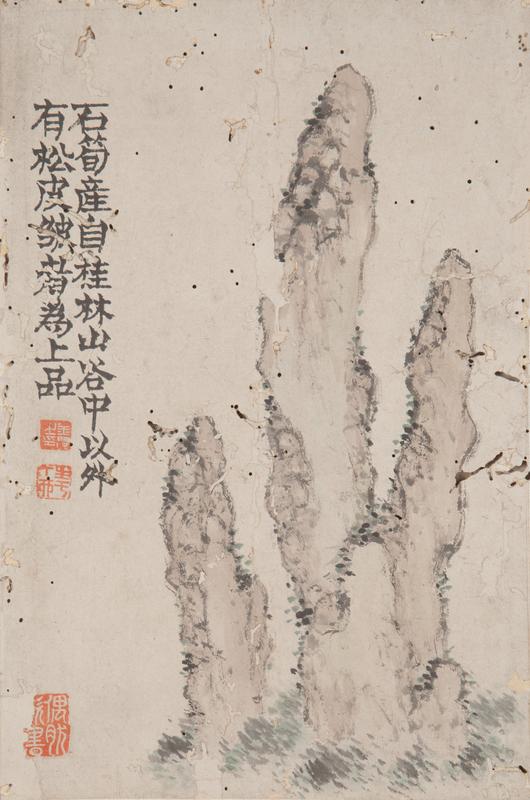 石筍産自桂林山谷中以外
有松皮皴者為上品